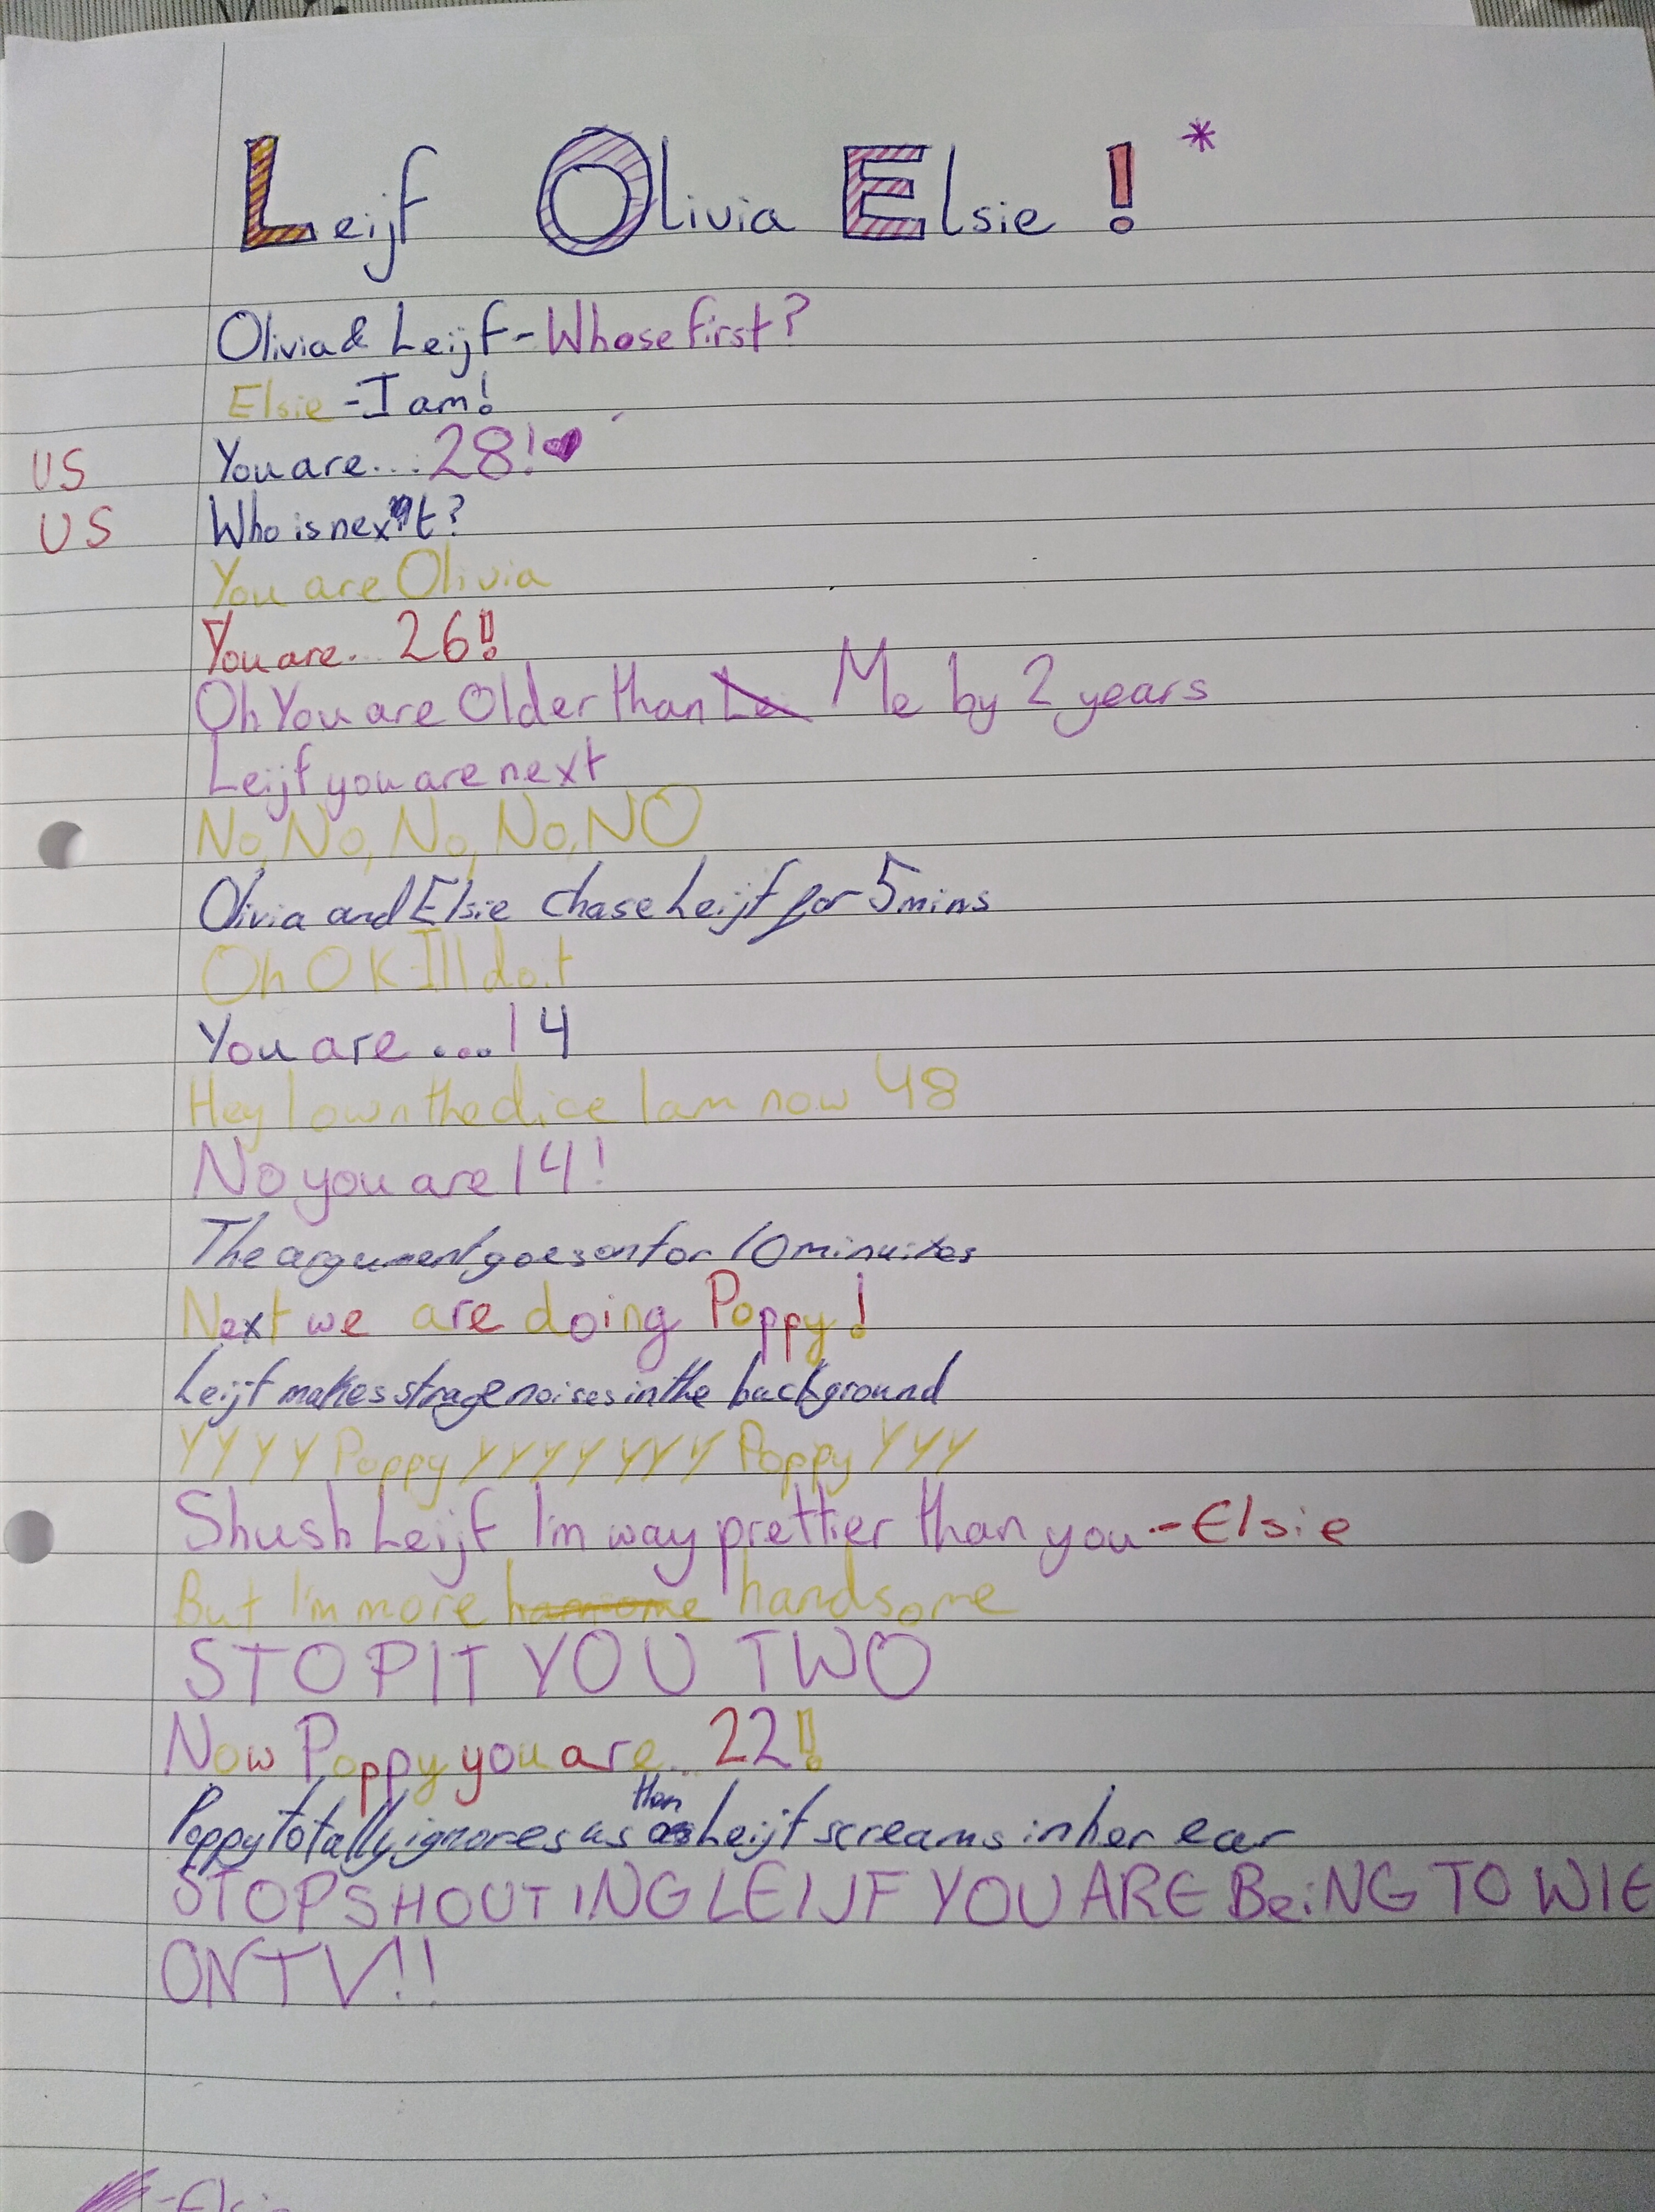 Leijf Olivia Elsie! *
Olivia & Leijf - Whose first?
Elsie - I am!
US You are....28!♥
US Who is next?
You are Olivia
You are... 26!!
Oh You are Older than Me by 2 years
Leijf you are next
No, No, No, No, NO
Olivia and Elsie chase Leijf for 5 mins
Oh OK I'll do it
You are ...14
Hey I own the dice I am now 48
No you are 14!
The argument goes on for 10 minuites
Next we are doing Poppy!
Leijf makes strage noises in the background
YYYY Poppy YYYYYYY Poppy YYY
Shush Leijf I'm way prettier than you - Elsie
But I'm more handsome
STOP IT YOU TWO
Now Poppy you are... 22!!
Poppy totally ignores us then Leijf screams in her ear
STOP SHOUTING LEIJF YOU ARE BeiNG TO
ON TV!!
- Elsie